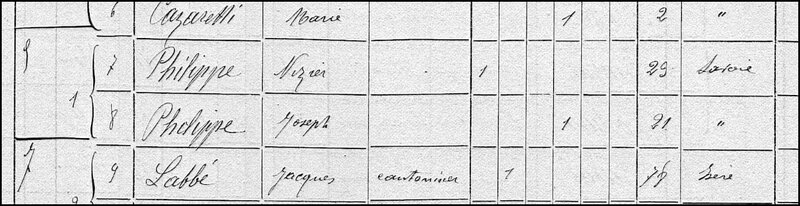 6 Cazaretti Marie 1 2 "
9 7 Philippe Nizier 1 29 Savoie
1 8 Philippe Joseph 1 21 "
7 9 Labbé Jacques cantonnier 1 Isère